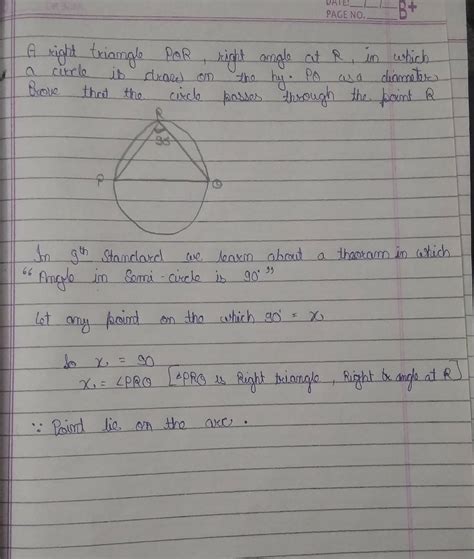 DATE: / /
PAGE NO.
B+
A right triangle PQR, right angle at R, in which
a circle is drawn on the hy. PQ as a diameter.
Prove that the circle passes through the point R
R
90°
P
Q
In 9th Standard we learn about a thearam in which
"Angle in Semi-circle is 90°"
Let any point on the which 90° = x₁
So x₁ = 90
x₁ = ∠PRQ [∠PRQ is Right triangle, Right angle at R]
∵ Point lie on the arc.